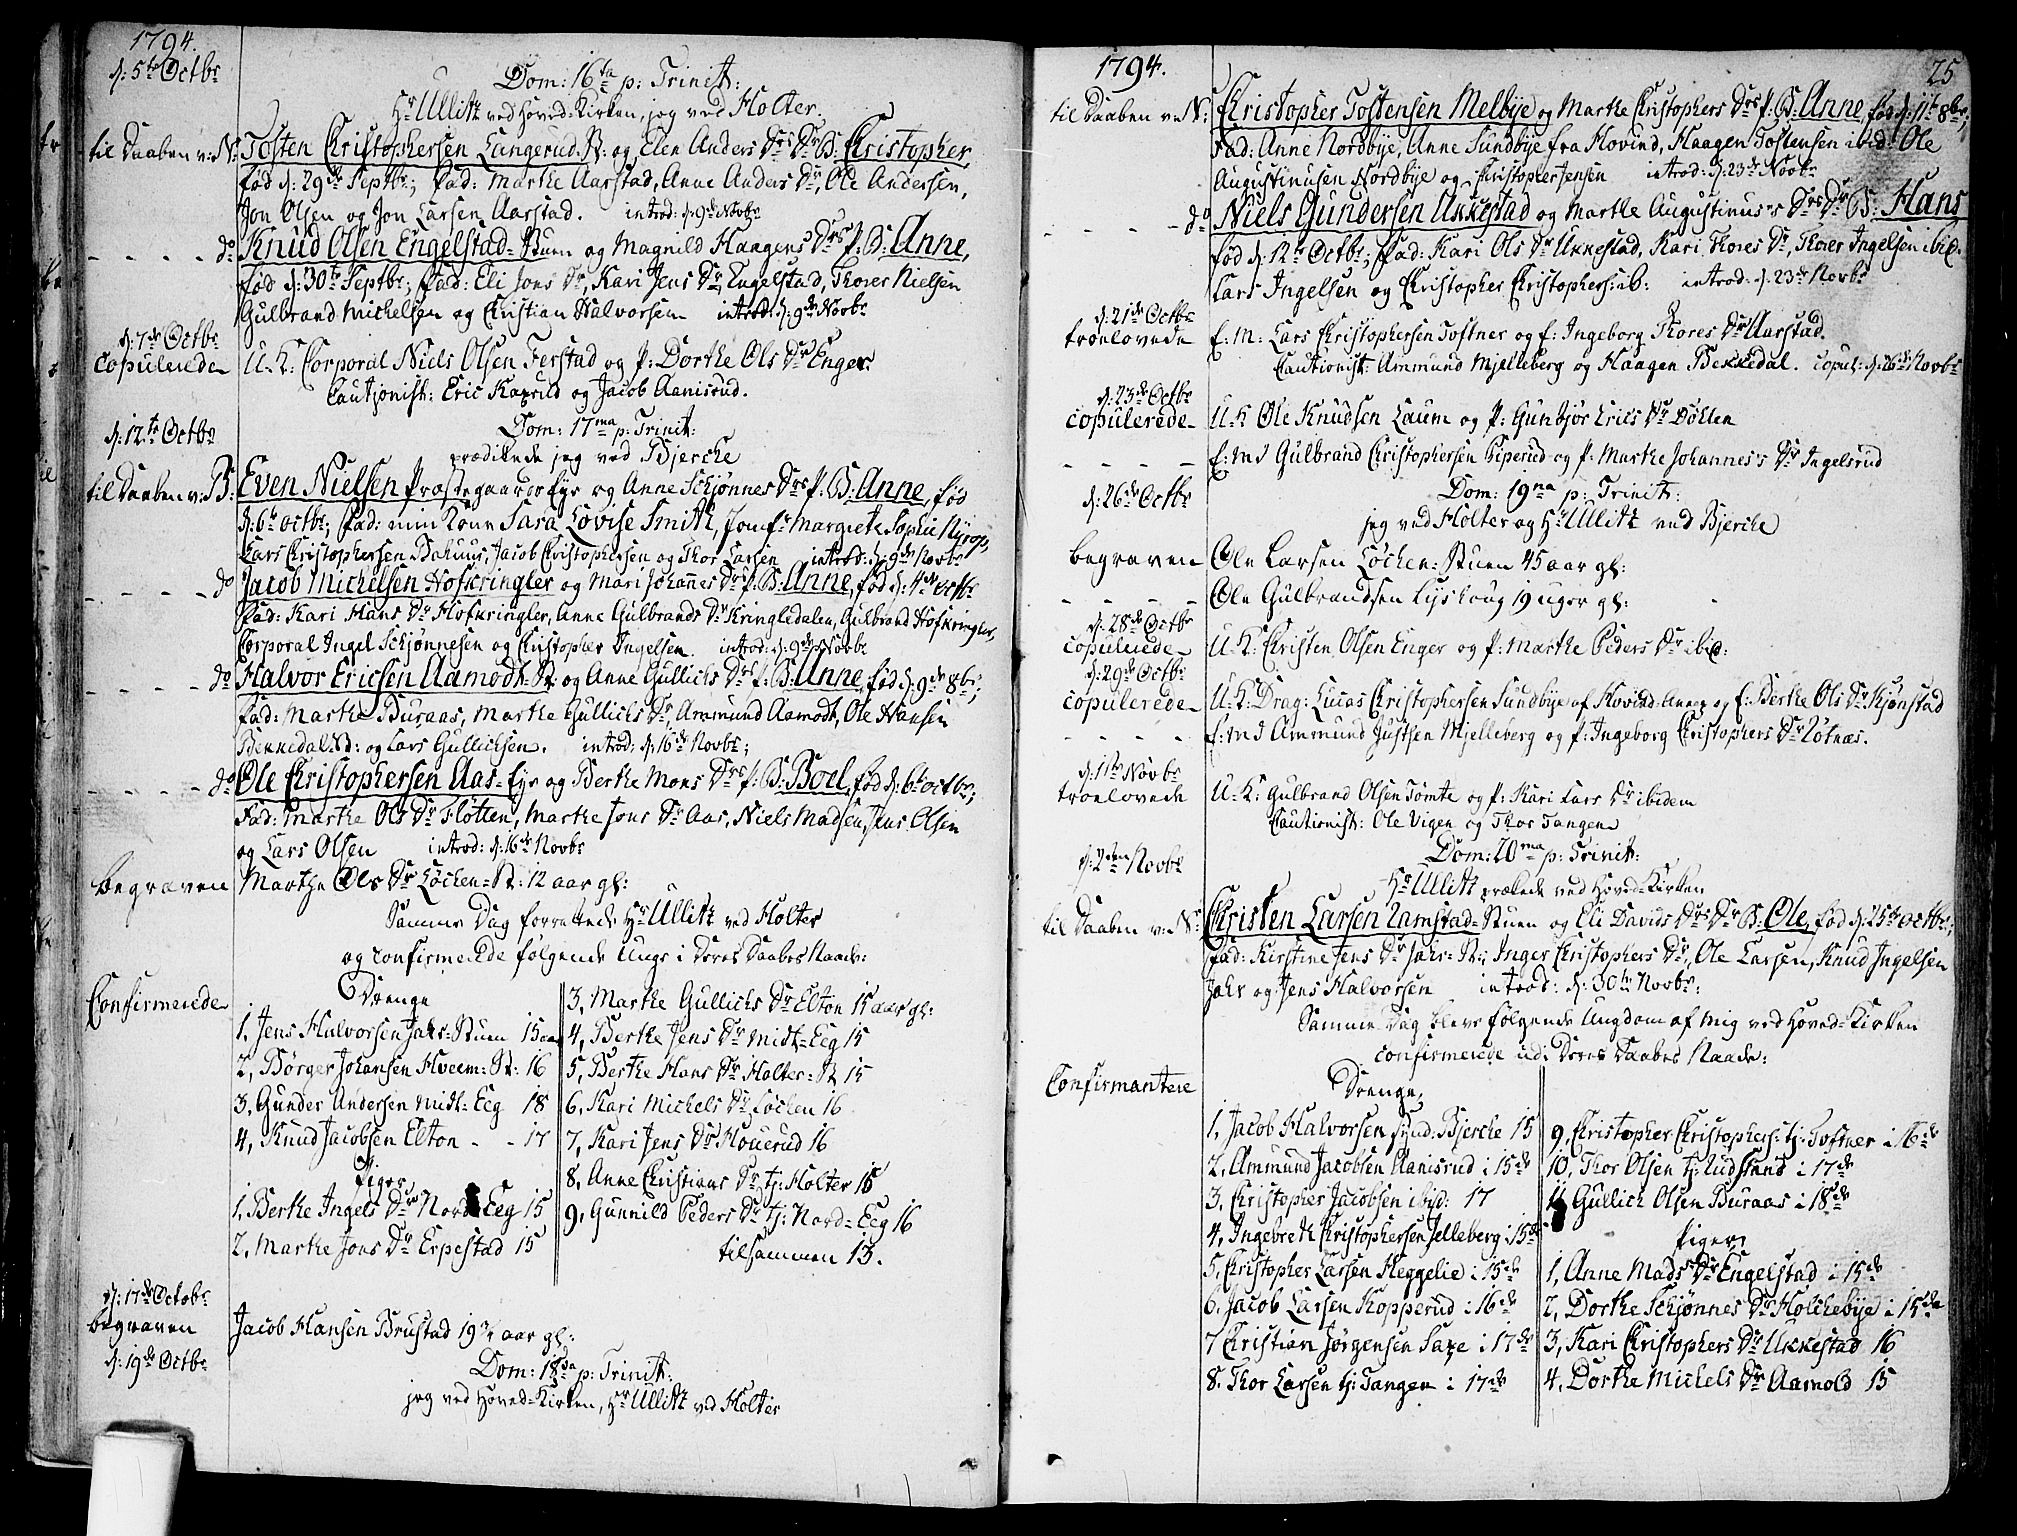 1794.
d: 5te Octbr
Dom: 16ta p: Trinit:
Hr Ullitz ved Hoved-Kirken, jeg ved Holter.
til Daaben v: N: Tosten Christophersen Langerud-St: og Elen Anders Drs Dr B: Christopher,
fød d: 29de Septbr; fad: Marthe Aarstad, Anne Anders Dr, Ole Andersen,
Jon Olsen og Jon Larsen Aarstad. introd: d: 9de Novbr
do Knud Olsen Engelstad-Stuen og Magnild Haagens Drs P: B: Anne,
fød d: 30te Septbr; fad: Eli Jons Dr, Kari Jens Dr Engelstad, Thorer Nielsen
Gulbrand Michelsen og Christian Halvorsen introd: d: 9de Novbr
d: 7de Octbr
copulerede U.K: Corporal Niels Olsen Ferstad og P: Dorthe Ols Dr Enger.
Cautionist: Eric Kaxrud og Jacob Aanisrud.
d: 12te Octbr
Dom: 17ma p: Trinit:
prædikede jeg ved Bjerche
til Daaben v: B: Even Nielsen Præstegaards Eye og Anne Schjønnes Drs P: B: Anne, fød
d: 6te Octbr; fad: min Kone Sara Lovise Smith, Jomfr Margrete Sophie Nyrop,
Lars Christophersen Bahuus, Jacob Christophersen og Thor Larsen introd: d: 9de Novbr
do Jacob Michelsen Hofkringler og Mari Johannes Dr P: B: Anne, fød d: 4de Octbr
fad: Kari Hans Dr Hofkringler, Anne Gulbrands Dr Kringledalen, Gulbrand Hofkringler,
Corporal Ingel Schjønnesen og Christopher Ingelsen. introd: d: 9de Novbr
do Halvor Ericsen Aamodt-St: og Anne Gullichs Drs P: B: Anne, fød d: 9de 8br;
fad: Marthe Buraas, Marthe Gullichs Dr, Ammund Aamodt, Ole Hansen
Bekkedal St: og Lars Gullichsen. introd: d: 16de Novbr;
do Ole Christophersen Aas-Eye og Berthe Mons Drs P: B: Boel, fød d: 6te Octbr;
Fad: Marthe Ols Dr Fløtten, Marthe Jons Dr Aas, Niels Madsen, Jens Olsen
og Lars Olsen introd: d: 16de Novbr
begraven Marthe Ols Dr Løchen-St: 12 aar gl:
Samme Dag forrættede Hr Ullitz ved Holter
og confirmerede følgende Unge i Deres Daabes Naade:
Confirmerede
Drenge
1, Jens Halvorsen Jahr-Stuen 15 aar
2, Børger Johansen Hveem-St: 16
3, Gunder Andersen Midt-Eeg 18
4, Knud Jacobsen Elton - - 17
Piger
1, Berthe Ingels Dr Nord Eeg 15
2, Marthe Jons Dr Erpestad 15
3, Marthe Gullichs Dr Elton 15 aar gl:
4, Berthe Jens Dr Midt-Eeg 15
5, Berthe Hans Dr Holter-St 15
6, Kari Michels Dr Løchen 16
7, Kari Jens Dr Houerud 16
8, Anne Christians Dr tj: Holter 16
9, Gunnild Peders Dr tj: Nord-Eeg 16
tilsammen 13.
d: 17de Octobr
begraven Jacob Hansen Brustad 19 3/4 aar gl:
d: 19de Octbr
Dom: 18da p: Trinit:
jeg ved Hoved-Kirken, Hr Ullitz ved Holter
1794.
25
til Daaben v: N: Christopher Tostensen Melbye og Marthe Christophers Drs P: B: Anne, fød d: 11te 8br,
Fad: Anne Nordbye, Anne Sundbye fra Hovind, Haagen Tostensen ibid: Ole
Augustinusen Nordbye og Christopher Jensen introd: d: 23de Novbr
do Niels Gundersen Ukkestad og Marthe Augustinus's Drs Dr B: Hans
fød d: 12te Octbr; fad: Kari Ols Dr Ukkestad, Kari Thores Dr, Thorer Ingelsen ibid:
Lars Ingelsen og Christopher Christophers: ib: introd: d: 23de Novbr
d: 21de Octbr
troelovede E: M: Lars Christophersen Toftner og E: Ingeborg Thores Dr Aarstad.
Cautionist: Ammund Mjelleberg og Haagen Bekkedal. copul: d: 26de Novbr
d: 23de Octbr
copulerede U.K Ole Knudsen Laum og P: Gunbjør Erics Dr Dohlen
E: M: Gulbrand Christophersen Piperud og P: Marthe Johannes's Dr Ingelsrud
d: 26de Octbr
Dom: 19na p: Trinit:
jeg ved Holter og Hr Ullitz ved Bjerche
begraven Ole Larsen Løchen-Stuen 45 aar gl:
Ole Gulbrandsen Lyskoug 19 uger gl:
d: 28de Octbr
copulerede U.K: Christen Olsen Enger og P: Marthe Peders Dr ibid:
d: 29de Octbr
copulerede U.K: Drag: Lucas Christophersen Sundbye af Hovind Annex og E: Berthe Ols Dr Kjønstad
E: M: Ammund Justsen Mjelleberg og P: Ingeborg Christophers Dr Løtnæs.
d: 1ste Novbr
troelovede U.K: Gulbrand Olsen Tømte og P: Kari Lars Dr ibidem
Cautionist: Ole Vigen og Thor Tangen
d: 2den Novbr
Dom: 20ma p: Trinit:
Hr Ullitz præked ved Hoved-Kirken
til Daaben v: N: Christen Larsen Ramstad-Stuen og Eli Davids Drs Dr B: Ole, fød d: 25te Octbr;
fad: Kirstine Jens Dr Jahr-St:, Inger Christophers Dr, Ole Larsen, Knud Ingelsen
Jahr og Jens Halvorsen introd: d: 30te Novbr:
Samme Dag bleve følgende Ungdom af mig ved Hoved-Kirken
confirmerede udi Deres Daabes Naade:
Confirmantere
Drenge
1, Jacob Halvorsen Bjerche 15
2, Ammund Jacobsen Aanisrud i 15de
3, Christopher Jacobsen ibid: 17
4, Ingebreth Christophersen Jelleberg i 15de
5, Christopher Larsen Heggelie i 15de
6, Jacob Larsen Kopperud i 16de
7 Christian Jørgensen Saxe i 17de
8. Thor Larsen tj: Tangen i 17de
9, Christopher Christophers: tj: Toftner i 16de
10, Thor Olsen tj: Rudstand i 17de
11 Gullich Olsen Buraas i 18de
Piger
1, Anne Mads Dr Engelstad i 15de
2, Dorthe Schjønnes Dr Holchebye i 15de
3, Kari Christophers Dr Ukkestad 16
4, Dorthe Michels Dr Aamold 15